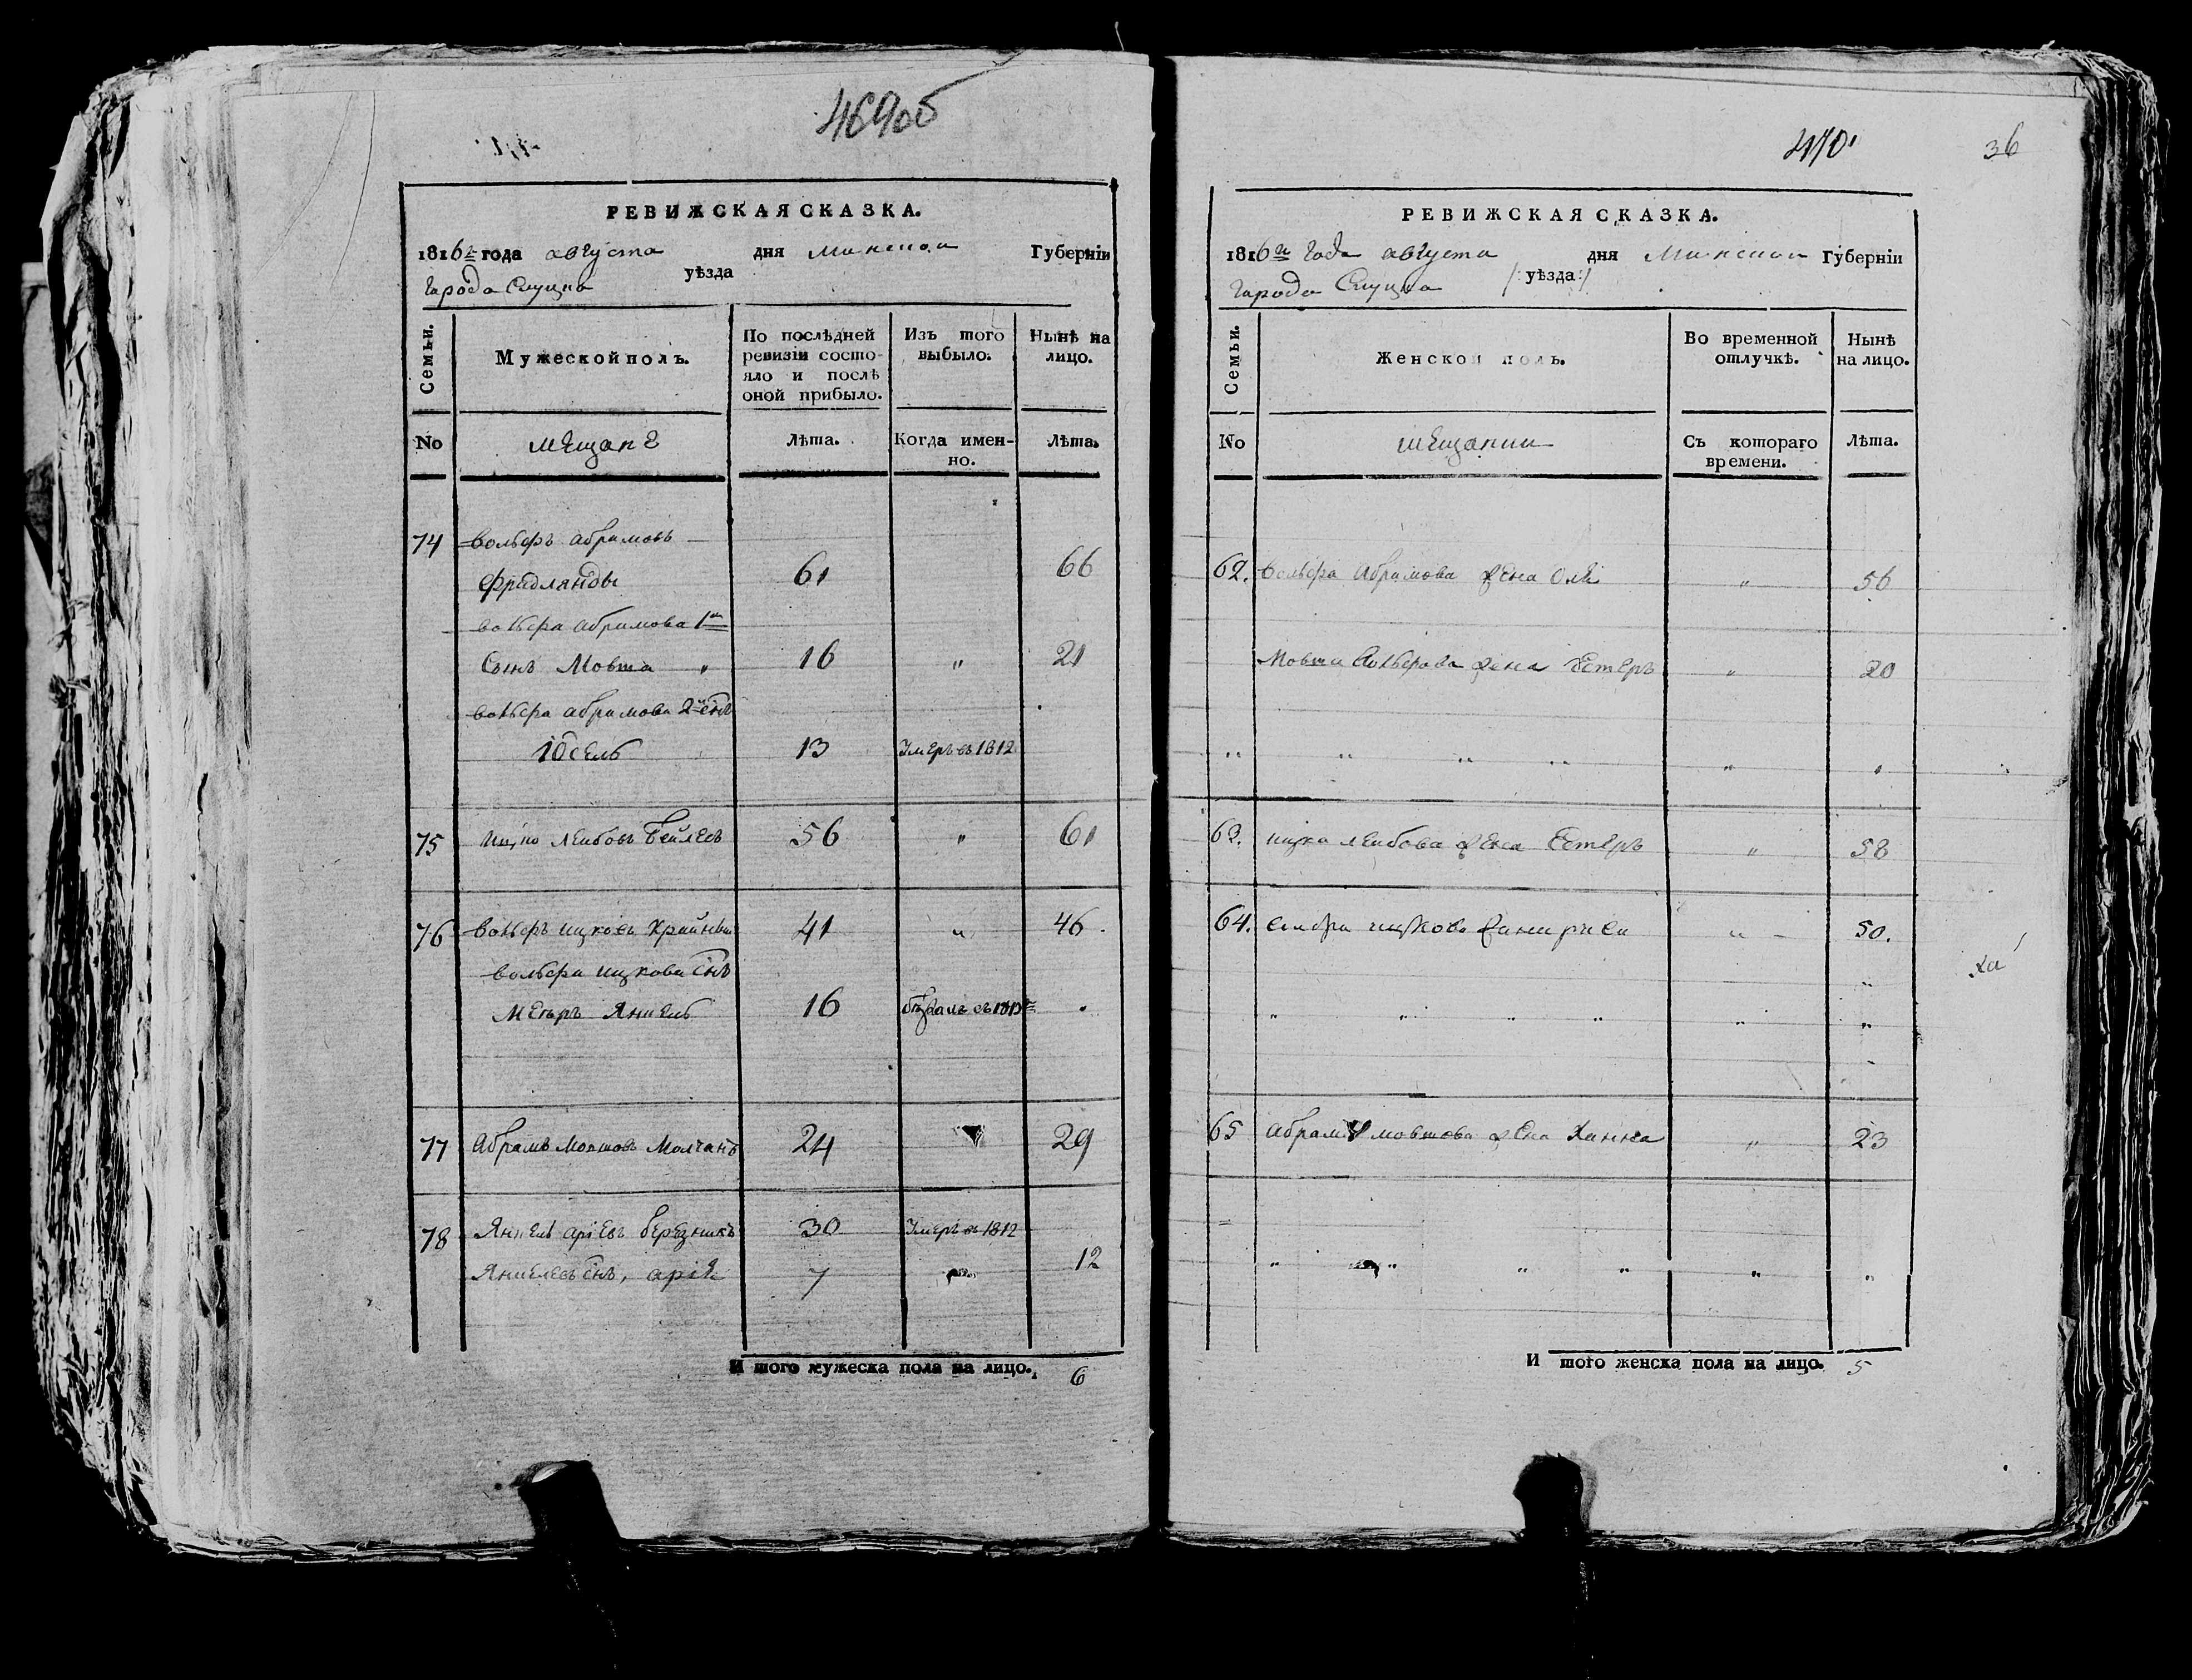 469об
РЕВИЖСКАЯ СКАЗКА.
1816го года августа дня Минской Губернiи
города Слуцка уѣзда
Семьи. Мужеской полъ. По послѣдней ревизiи состояло и послѣ оной прибыло. Изъ того выбыло. Нынѣ на лицо.
No мещане Лѣта. Когда именно. Лѣта.
74 Вольфъ Абрамовъ
Фридляндъ 61 66
Вольфа Абрамова 1й
Сынъ Мовша 16 " 21
Вольфа Абрамова 2й снъ
Iосель 13 Умеръ въ 1812
75 Ицко Лейбовъ Бейлесъ 56 " 61
76 Вольфъ Ицковъ 41 " 46.
Вольфа Ицкова снъ
Мееръ Янкель 16
77 Абрамъ Мовшовъ Молчанъ 24 29
78 Янкель Арiевъ Березникъ 30 Умеръ въ 1812
Янкелевъ снъ, Арiя 7 12
И того мужеска пола на лицо. 6
470 36
РЕВИЖСКАЯ СКАЗКА.
1816го года августа дня Минской Губернiи
города Слуцка /:уѣзда:/
Семьи. Женской полъ. Во временной отлучкѣ. Нынѣ на лицо.
No мещанки Съ котораго времени. Лѣта.
62. Вольфа Абрамова жена " 56
Мовши Вольфова жена Естеръ " 20
63. Ицка Лейбова жена Естеръ " 58
64. Вольфа Ицкова " 50.
65 Абрама Мовшова жена Ханна " 23
И того женска пола на лицо. 5